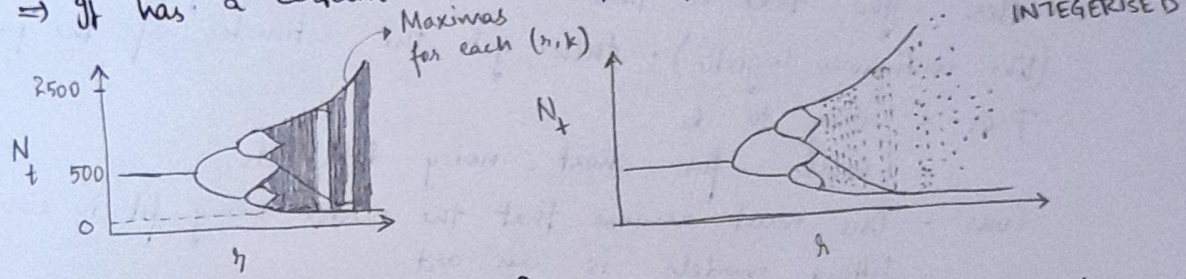 => It has a
INTEGERISED
Maximas
for each (r, k)
2500
N_t
500
0
r
N_t
r